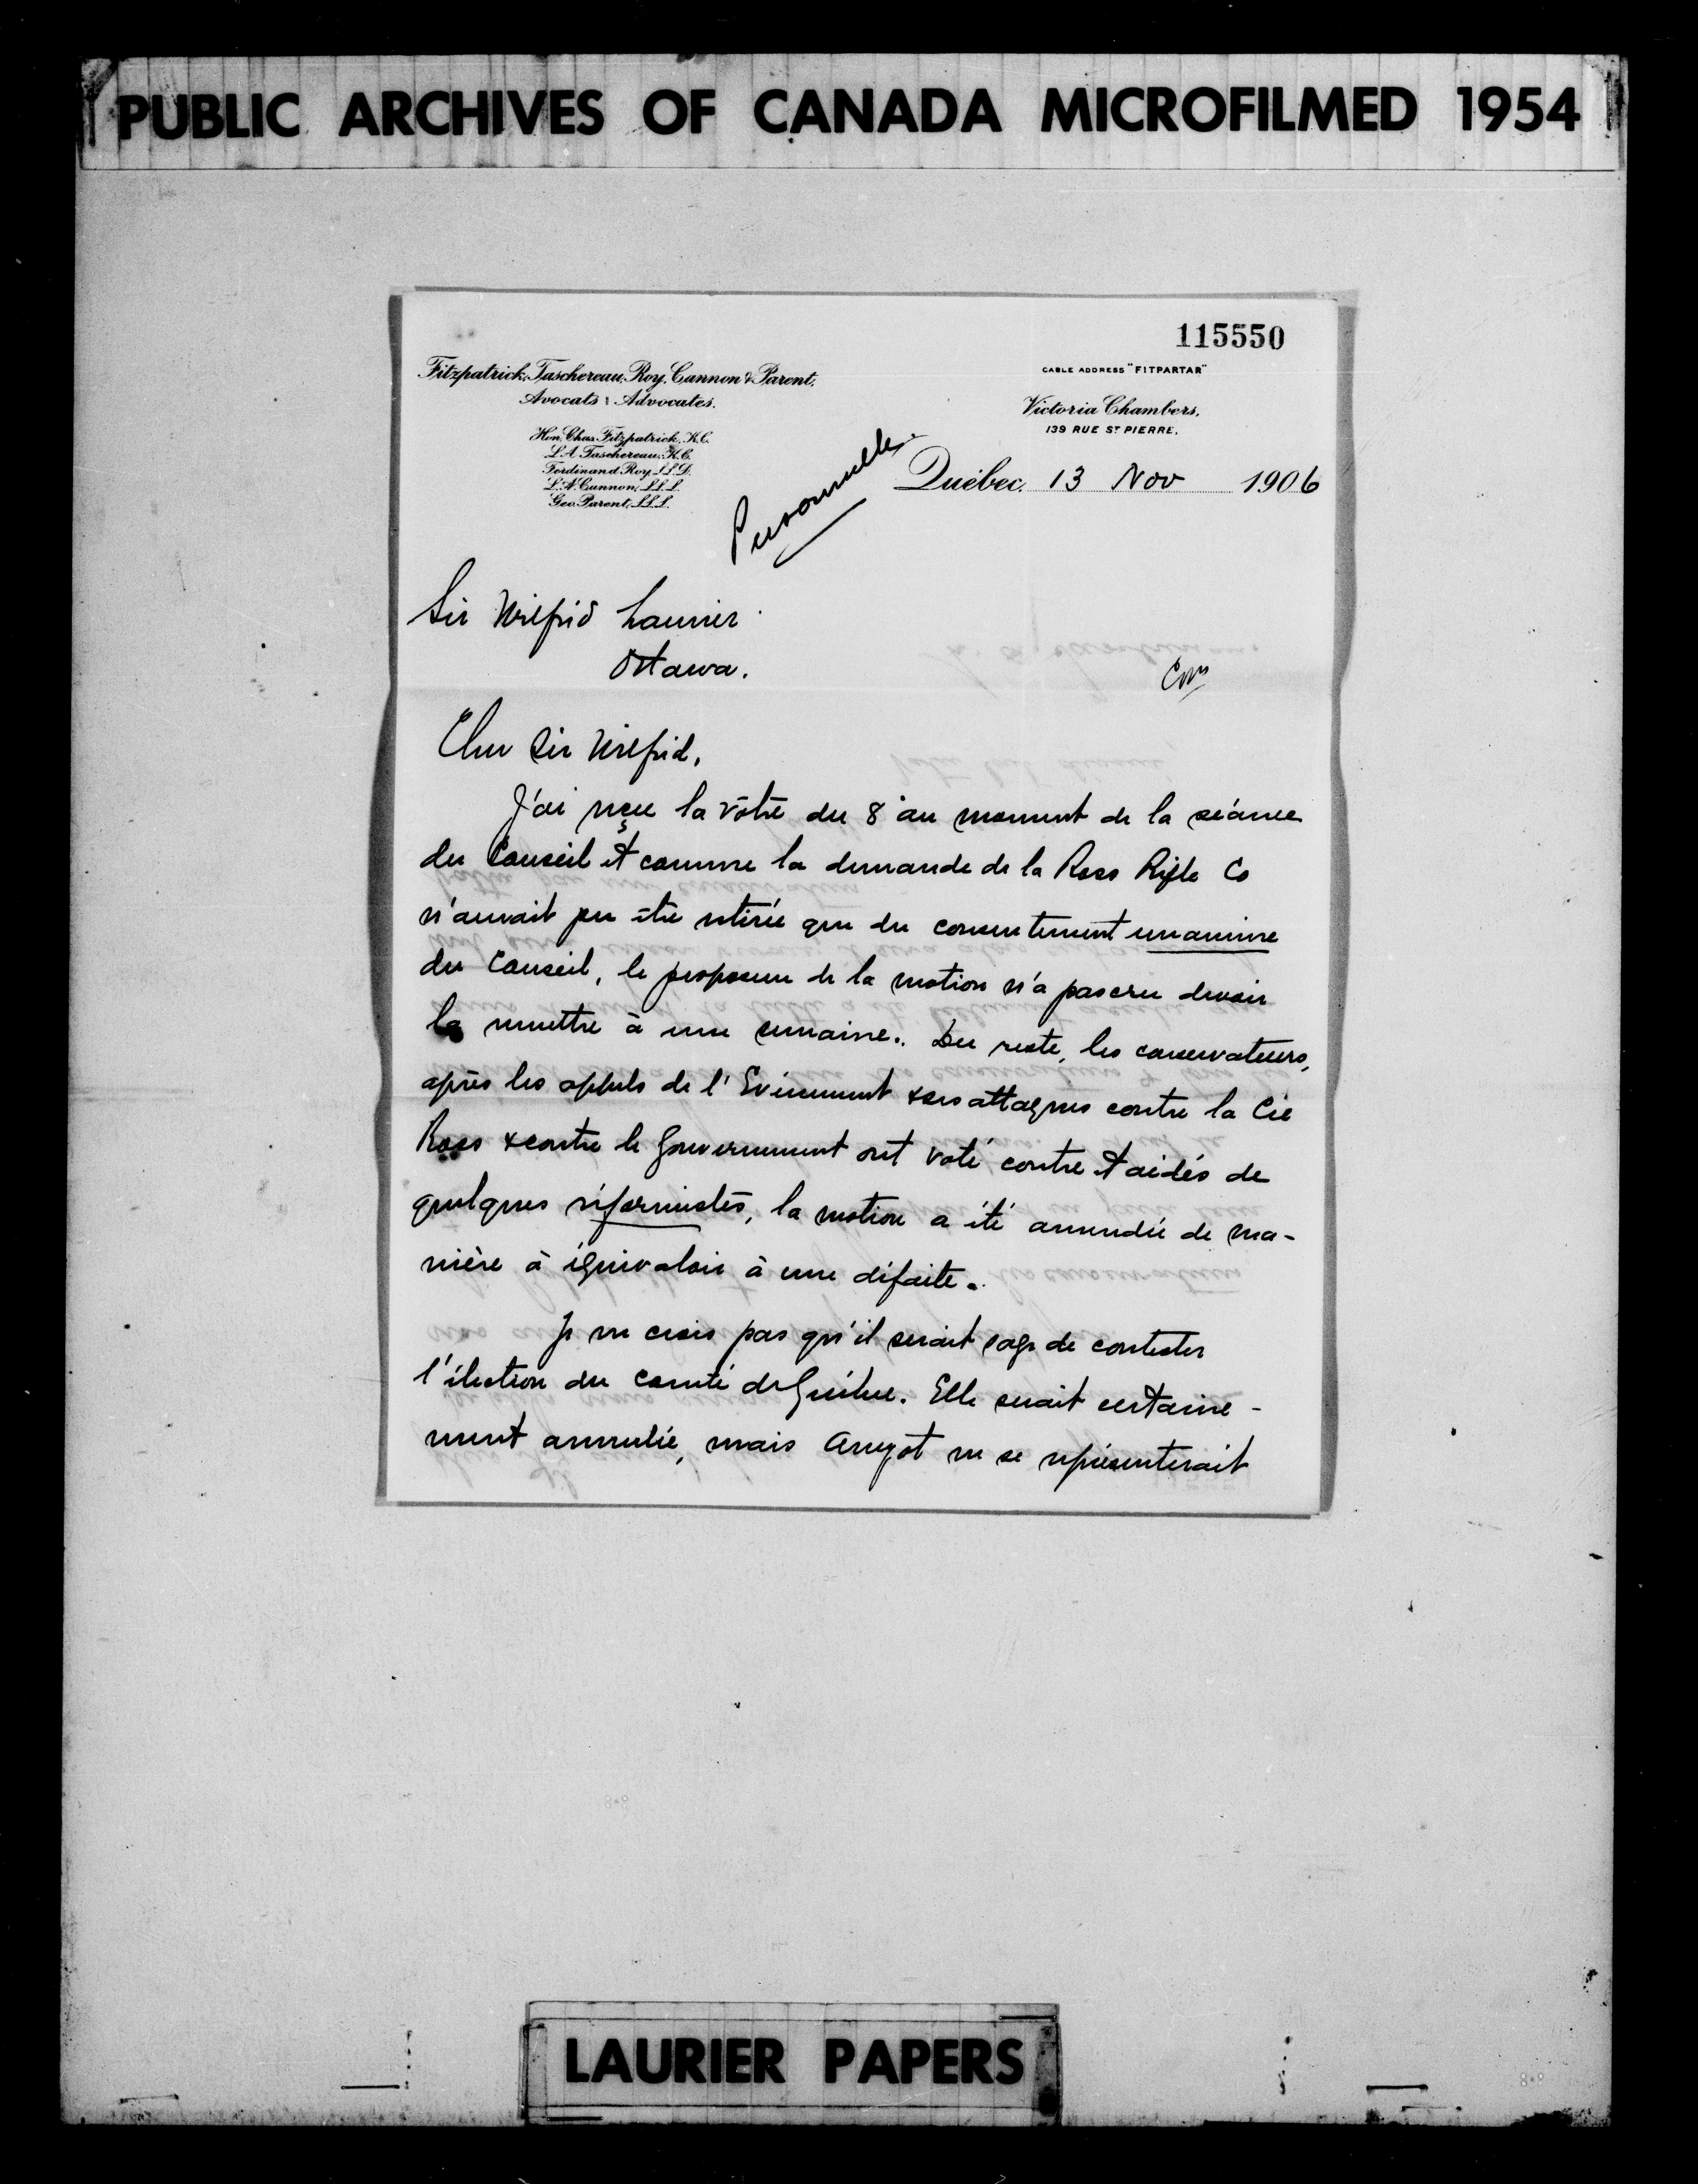 PUBLIC ARCHIVES OF CANADA MICROFILMED 1954
115550
Fitzpatrick, Taschereau, Roy, Cannon & Parent.
Avocats Advocates.
Hon. Chas. Fitzpatrick, K.C.
L.A. Taschereau, K.C.
Ferdinand Roy, LL.D.
L.N. Cannon, LL.L.
Geo. Parent, LL.L.
CABLE ADDRESS "FITPARTAR"
Victoria Chambers,
139 RUE ST PIERRE.
Personnelle.
Québec, 13 Nov 1906
Sir Wilfrid Laurier
Ottawa.
Cher Sir Wilfrid,
J'ai reçu la vôtre du 8 au moment de la séance
du Conseil et comme la demande de la Ross Rifle Co
n'aurait pu être retirée que du consentement unanime
du Conseil, le proposeur de la motion n'a pas cru devoir
la remettre à une semaine. Du reste, les conservateurs,
après les appels de l'Evènement & ses attaques contre la Cie
Ross & contre le Gouvernement ont voté contre et aidés de
quelques réformistes, la motion a été amendée de ma-
nière à équivaloir à une défaite.
Je ne crois pas qu'il serait sage de contester
l'élection du comté de Québec. Elle serait certaine-
ment annulée, mais Amyot ne se représenterait
LAURIER PAPERS